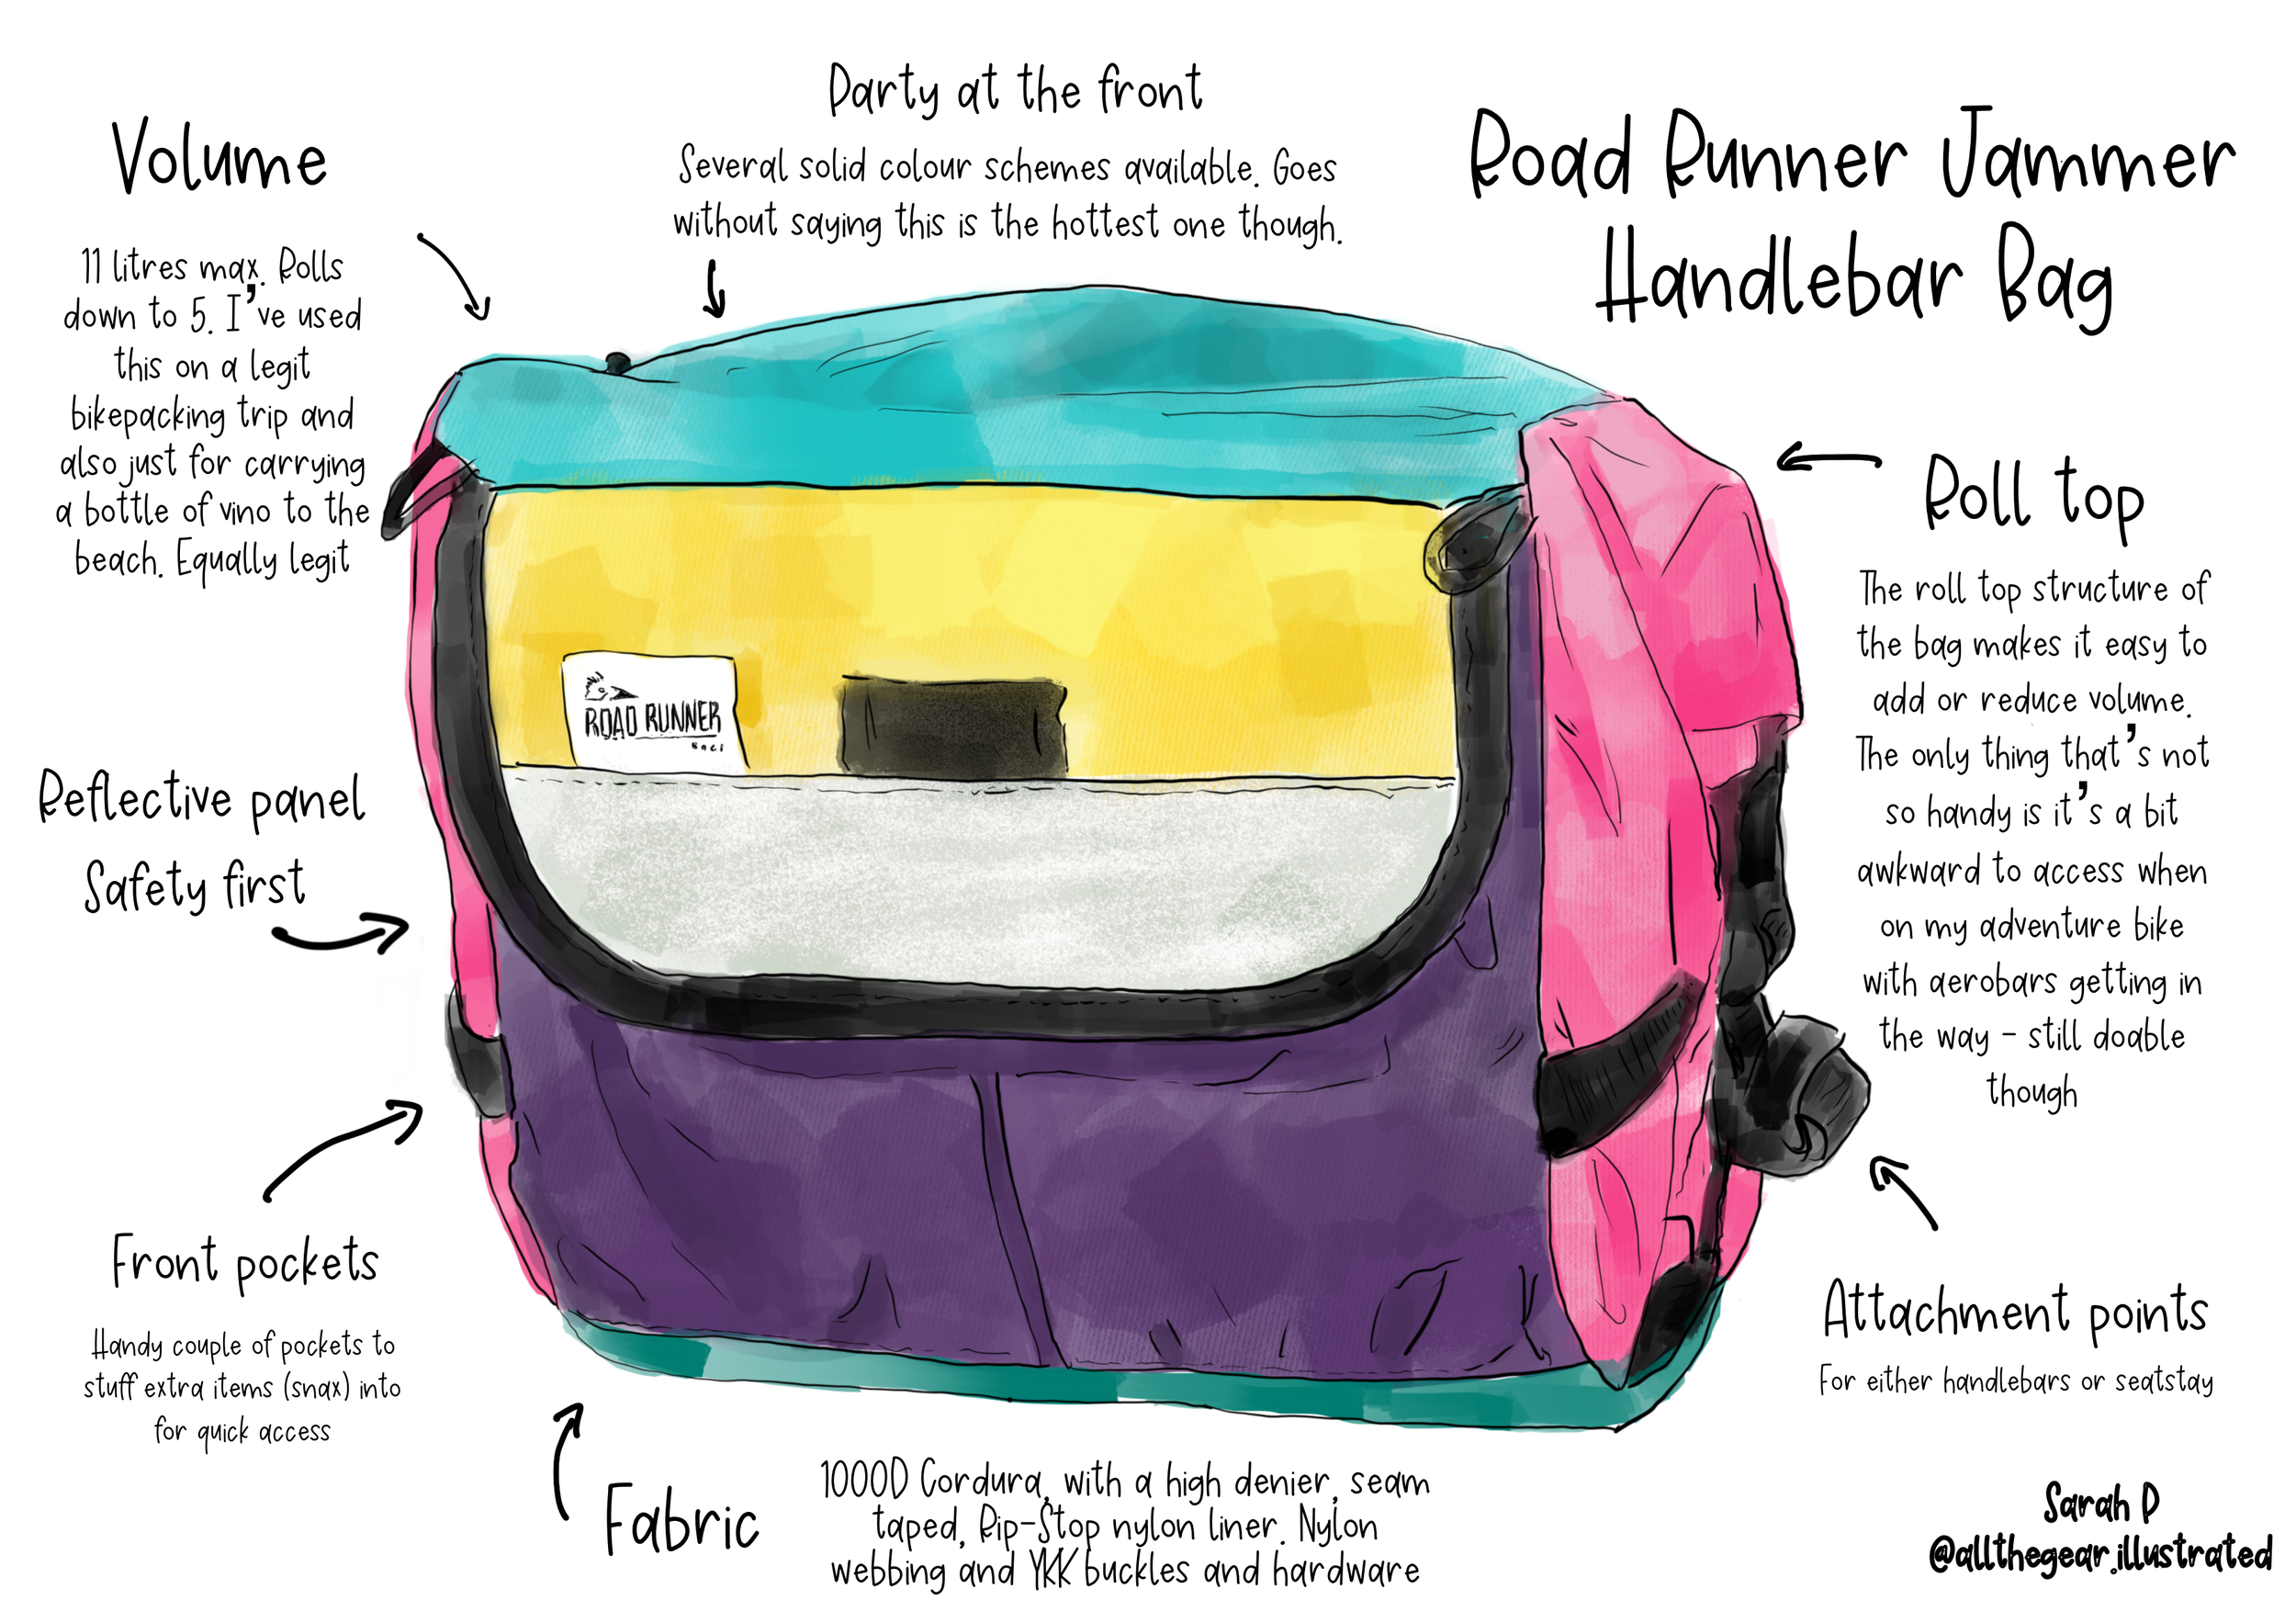 Party at the front
Several solid colour schemes available. Goes
without saying this is the hottest one though.
Road Runner Jammer
Handlebar Bag
Volume
11 litres max. Rolls
down to 5. I've used
this on a legit
bikepacking trip and
also just for carrying
a bottle of vino to the
beach. Equally legit
Roll top
The roll top structure of
the bag makes it easy to
add or reduce volume.
The only thing that's not
so handy is it's a bit
awkward to access when
on my adventure bike
with aerobars getting in
the way - still doable
though
ROAD RUNNER
BAGS
Reflective panel
Safety first
Front pockets
Handy couple of pockets to
stuff extra items (snax) into
for quick access
Attachment points
For either handlebars or seatstay
Fabric
1000D Cordura, with a high denier, seam
taped, Rip-Stop nylon liner. Nylon
webbing and YKK buckles and hardware
Sarah P
@allthegear.illustrated